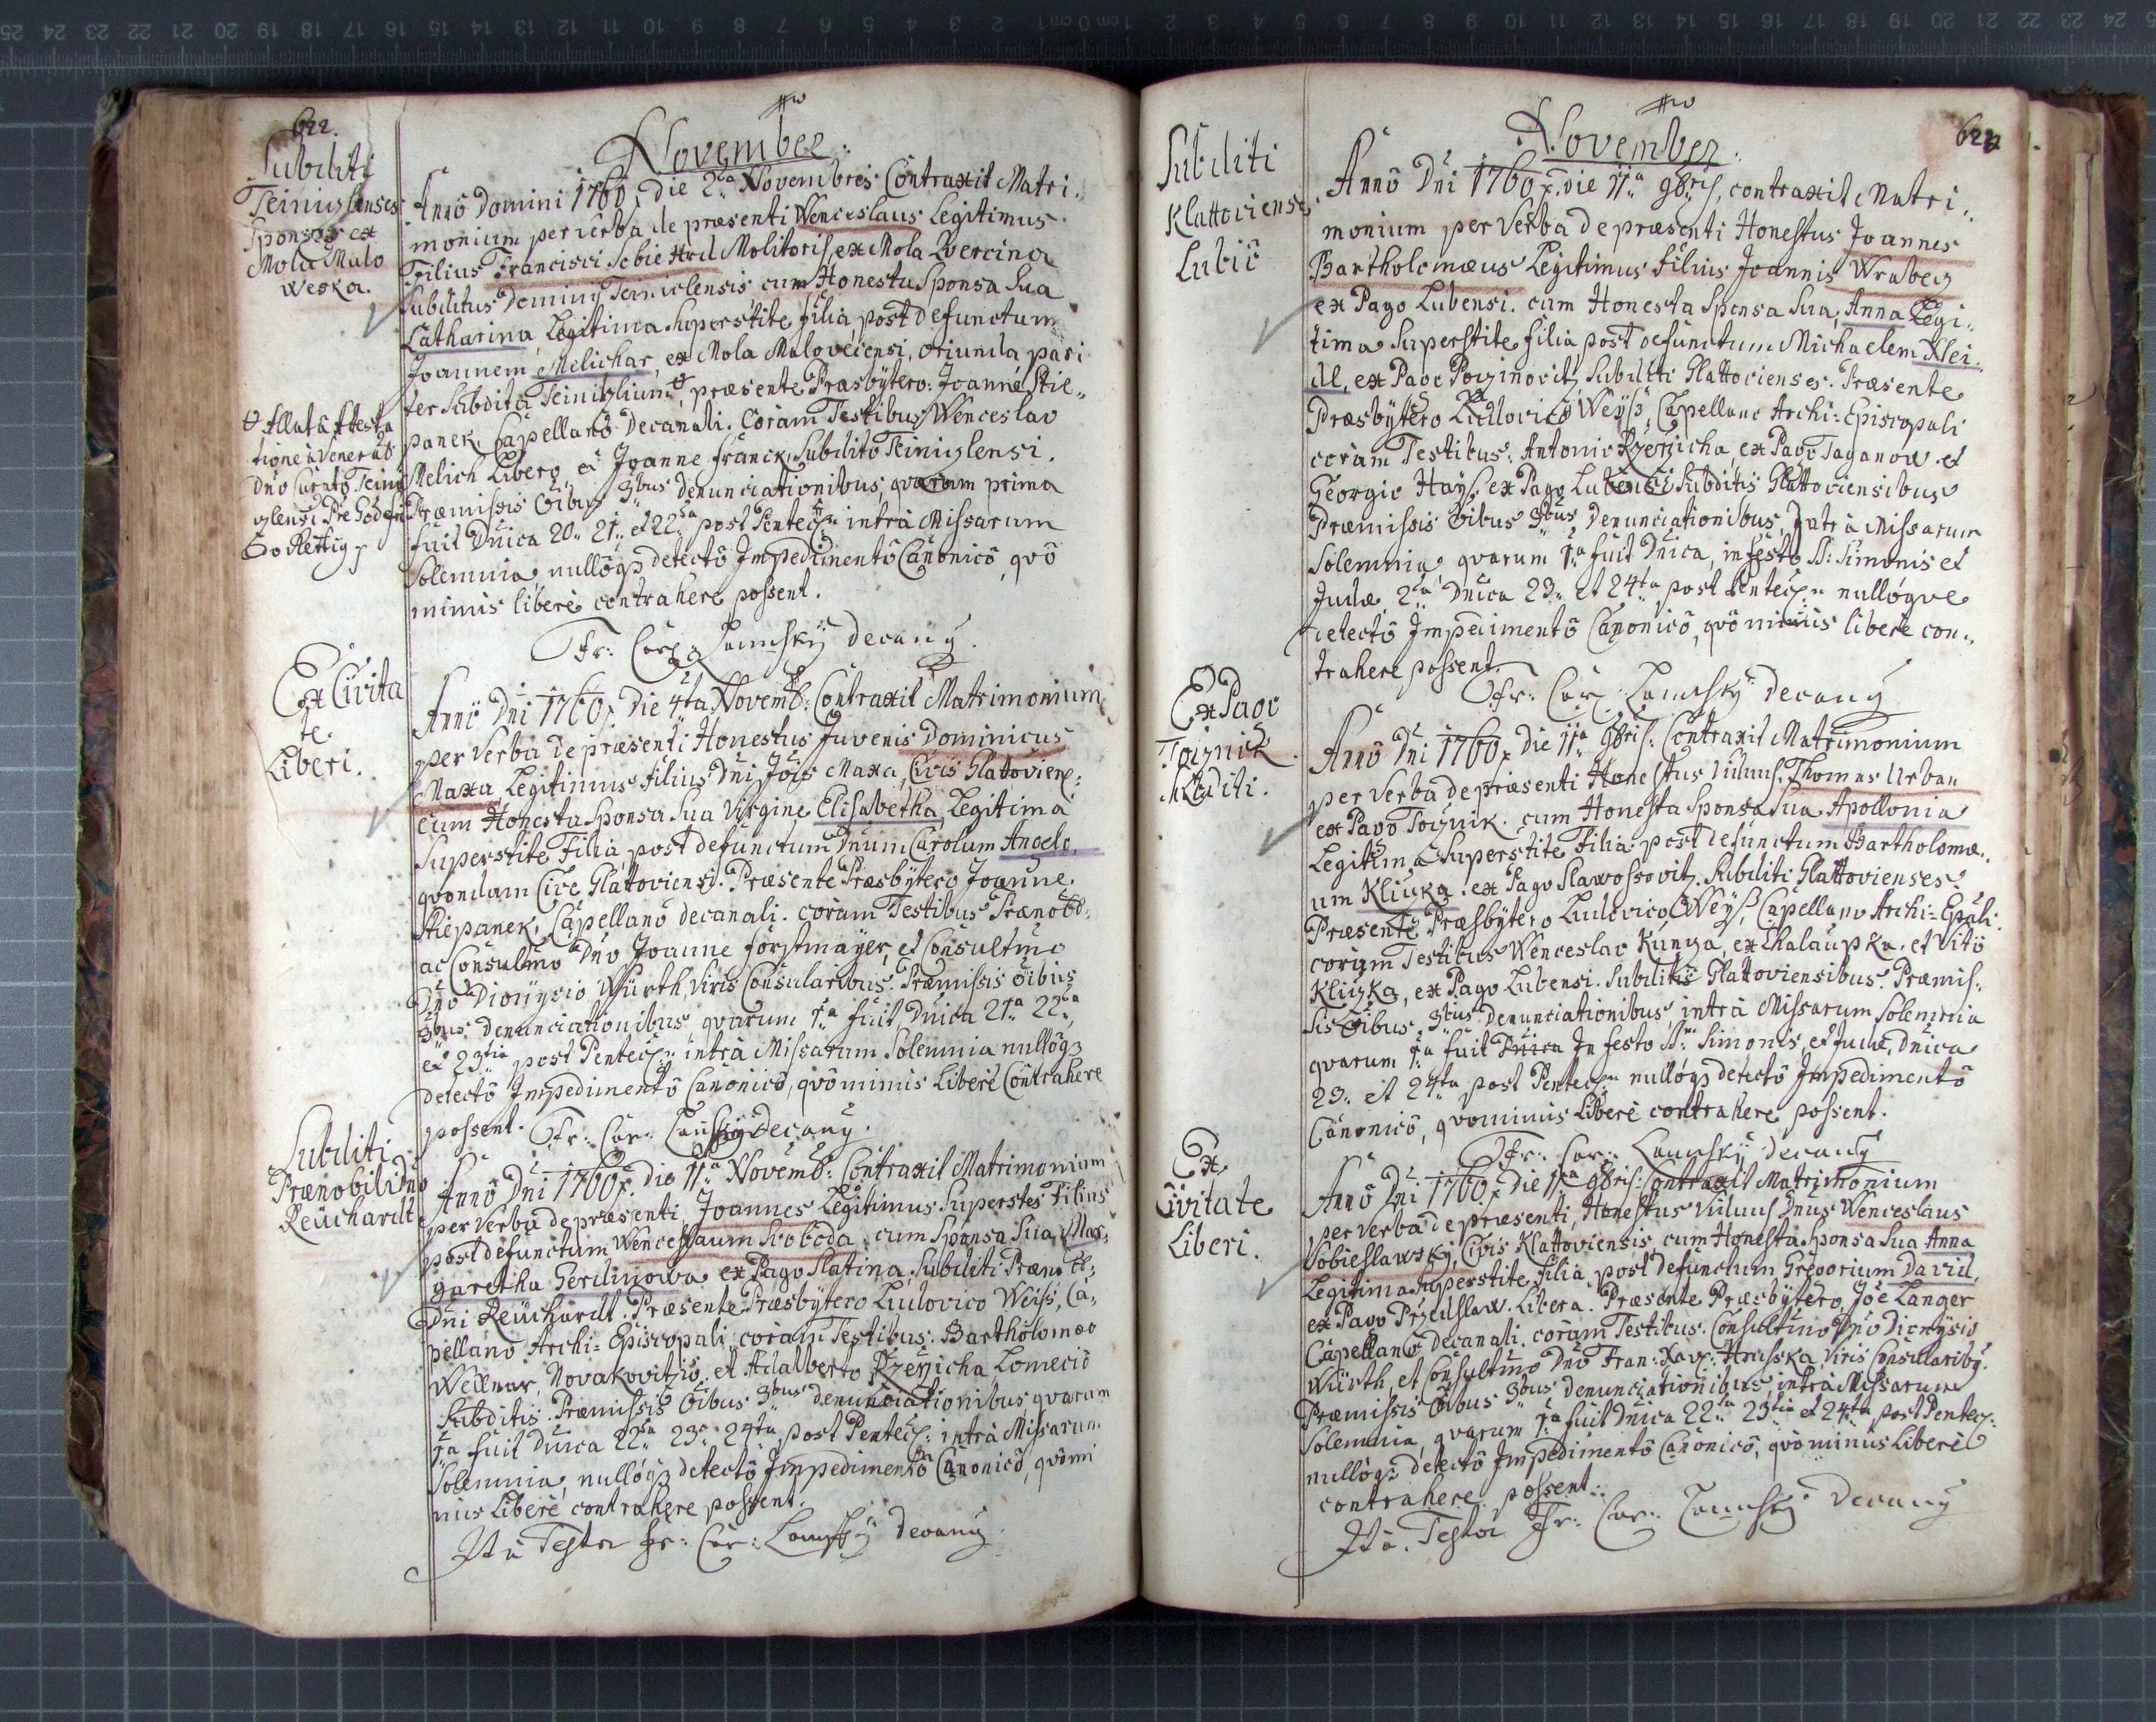 622.
November
Subditi
Teinizlenses
Sponsus ex
Mola Malo
weska.
Annô Domini 1760. Die 2da Novembris Contraxit Matri„
monium per verba de præsenti Wenceslaus Legitimus
Filius Francisci Sebie Hrd Molitoris, ex Mola
Subditus Dominij Teiniclensis cum Honesta Sponsa Sua
Catharina, Legitima Superstite filia post defunctum
Joannem Melichar, ex Mola Maloveciensi, oriunda pari
ter Subdita præsente Præsbÿtero: Joanne Stie„
panek, Capellanô Decanali. Coram Testibus Wenceslao
Melich Libero, et Joanne franck Subditô Teinizlensi.
Præmissis õibus 3bus denunciationibus, qvarum prima
fuit Dnica 20. 21. et 22da post Pentec: intrà Missarum
Solemnia, nullôq3 detectô Impedimentô Canonicô, qvô
minus liberè contrahere possent.
Allatâ Attesta
tione à Venerab
Dno Curato Teini
zlensi
Fr: Car: Lamskÿ decang.
Ex Civita
te.
Liberi.
Annô Dni 1760. Die 4ta Novemb: Contraxit Matrimonium
per Verba de præsenti Honestus Juvenis Dominicus
Maxa, Legitimus filius Dni Jois Maxa, Civis Glattovien:
cum Honesta Sponsa Sua Virgine Elisabetha, Legitima
Superstite Filia, post defunctum Dnum Carolum Angelo,
qvondam Cive Glattoviensi. Præsente Præsbÿtero Joanne
Stiepanek, Capellanô decanali. coram Testibus Prænob:
ac Consultmo Dno Joanne forstmaÿer, et Consultmo
Dno Dionÿsio Würth, Viris Consularibus. Præmissis õibus
3bus denunciationibus qvarum 1a fuit Dnica 21a 22da
et 23tia post Pentec: intrà Missarum Solemnia nullôq3
detectô Impedimentô Canonicô, qvô minus Liberè Contrahere
possent. Fr: Car: Lamskÿ Decang.
Subditi
Prænobili Dno
Reüchardt
Annô Dni 1760. Die 11a Novemb: Contraxit Matrimonium
per Verba de præsenti, Joannes Legitimus Superstes Filius
post defunctum Wenceslaum Swoboda, cum Sponsa Sua, Mar:
garetha Gerdinowa ex Pago Slatina, Subditi Prænob:
Dni Reüchardt. Præsente Præsbÿtero Ludovico Weiss, Ca„
pellanô Archi-Episcopali, coram Testibus: Bartholomæo
Wellnar, Novakovitzio, et Adalberto Rzerzicha, Lomecio
Subditis. Præmissis Õibus 3bus denunciationibus, qvarum
1a fuit Dnica 22da 23a 24ta post Pentec: intrà Missarum
Solemnia, nullôq3 detectô Impedimentô Canonicô, qvômi
nus Liberè contrahere possent.
Ita Testor Fr: Car: Lamskÿ Decang.
November
Subditi
Klattovienses
Lubiô
Annô Dni 1760. die 11a 9bris, contraxit Matri„
monium per Verba de præsenti Honestus Joannes
Bartholomæus Legitimus filius Joannis Wrabez
ex Pago Lubensi. cum Honesta Sponsa Sua, Anna Legi„
tima Superstite filia, post defunctum Michaelem Klei„
dl, ex Pago Subditi Glattovienses. Præsente
Præsbÿtero Ludovico Weÿß, Capellano Archi-Episcopali
coram Testibus: Antonio Rzerzicha, ex Pago Taganow. et
Georgio Haÿs, ex Pago Lubensi Subditis Glattoviensibus
Præmissis Õibus 3bus Denunciationibus, Intrà Missarum
Solemnia, qvarum 1a fuit Dnica, in festo SS: Simonis et
Judæ, 2da Dnica 23. et 24ta post Pentec: nullôqve
detectô Impedimentô Canonicô, qvô minus liberè con„
trahere possent.
Fr: Car: Lamskÿ Decang
Ex Pago
Toiznik
Subditi.
Annô Dni 1760. Die 11a 9bris. Contraxit Matrimonium
per Verba de præsenti Honestus Viduus, Thomas Urban
ex Pago Toiznik. cum Honesta Sponsa Sua Apollonia
Legitima Superstite Filia post defunctum Bartholomæ„
um Kliczka. ex Pago Slawossovitz. Subditi Glattovienses.
Præsente Præsbÿtero Ludovico Weÿß, Capellano Archi-Epali.
coram Testibus Wenceslao Kunza, ex Chalaupka. et Vitô
Kliczka, ex Pago Lubensi. Subditis Glattoviensibus. Præmis„
sis Õibus 3bus Denunciationibus intrà Missarum Solemnia
qvarum 1a fuit Dnica In festo SS: Simonis, et Judæ, Dnica
23. et 24ta post Pentec: nullôq3 detectô Impedimentô
Canonicô, qvominus Liberè contrahere possent.
Fr: Car: Lamskÿ Decang
Ex
Civitate
Liberi.
Annô Dni 1760. Die 11a 9bris: Contraxit Matrimonium
per Verba de præsenti, Honestus Viduus Dnus Wenceslaus
Sobieslawskÿ, Civis Klattoviensis cum Honesta Sponsa Sua Anna
Legitima Superstite filia, post defunctum Gregorium David,
ex Pago Przedslaw. Libera. Præsente Præsbÿtero, Jõe Langer
Capellanô Decanali. coram Testibus. Consultmo Dno Dionÿsio
Würth, et Consultmo Dno Fran: Xav: Hrusska Viris Consularibq.
Præmissis Õibus 3bus denunciationibus, intrà Missarum
Solemnia, qvarum 1a fuit Dnica 22da 23tia et 24ta post Pentec:
nullôq3 detectô Impedimentô Canonicô, qvôminus Liberè
contrahere possent.
Ita Testor Fr: Car: Lamskÿ Decang